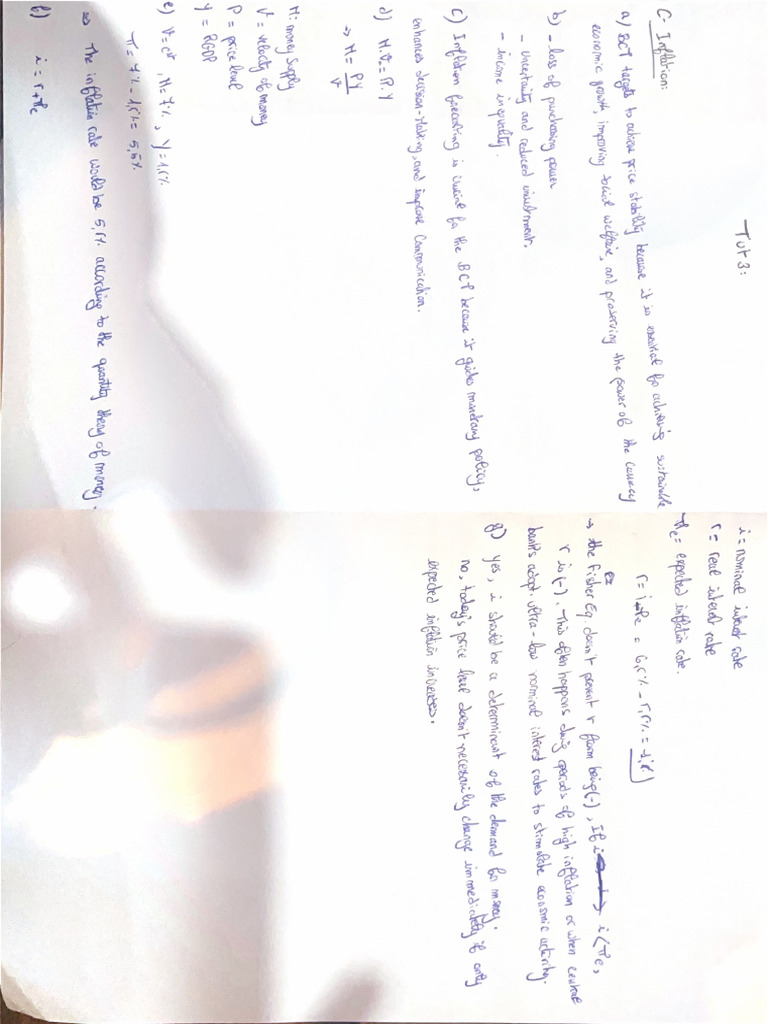 Tut 3:
C. Inflation:
a) BCT targets to achieve price stability because it is essential for achieving sustainable
economic growth, improving social welfare, and preserving the power of the currency
b) - loss of purchasing power
- uncertainty and reduced investment.
- income inequality.
c) Inflation forecasting is crucial for the BCT because it guides monetary policy,
enhances decision-Making, and improve Communication.
d) M.V = P.Y
→ M = PY/V
M: money supply
V = velocity of money
P = price level
Y = RGDP
e) V = c^te, M = 7%, Y = 1,5%
π = 7% - 1,5% = 5,5%
⇒ The inflation rate would be 5,5% according to the quantity theory of money.
f) i = r + πe
i = nominal interest rate
r = real interest rate
πe = expected inflation rate.
r = i - πe =
→ the Fisher Eq. doesn't prevent r from being (-), If i < πe,
r is (-). This often happens during periods of high inflation or when central
banks adopt ultra-low nominal interest rates to stimulate economic activity.
g) yes, i should be a determinant of the demand for money.
no, today's price level doesn't necessarily change immediately if only
expected inflation increases.